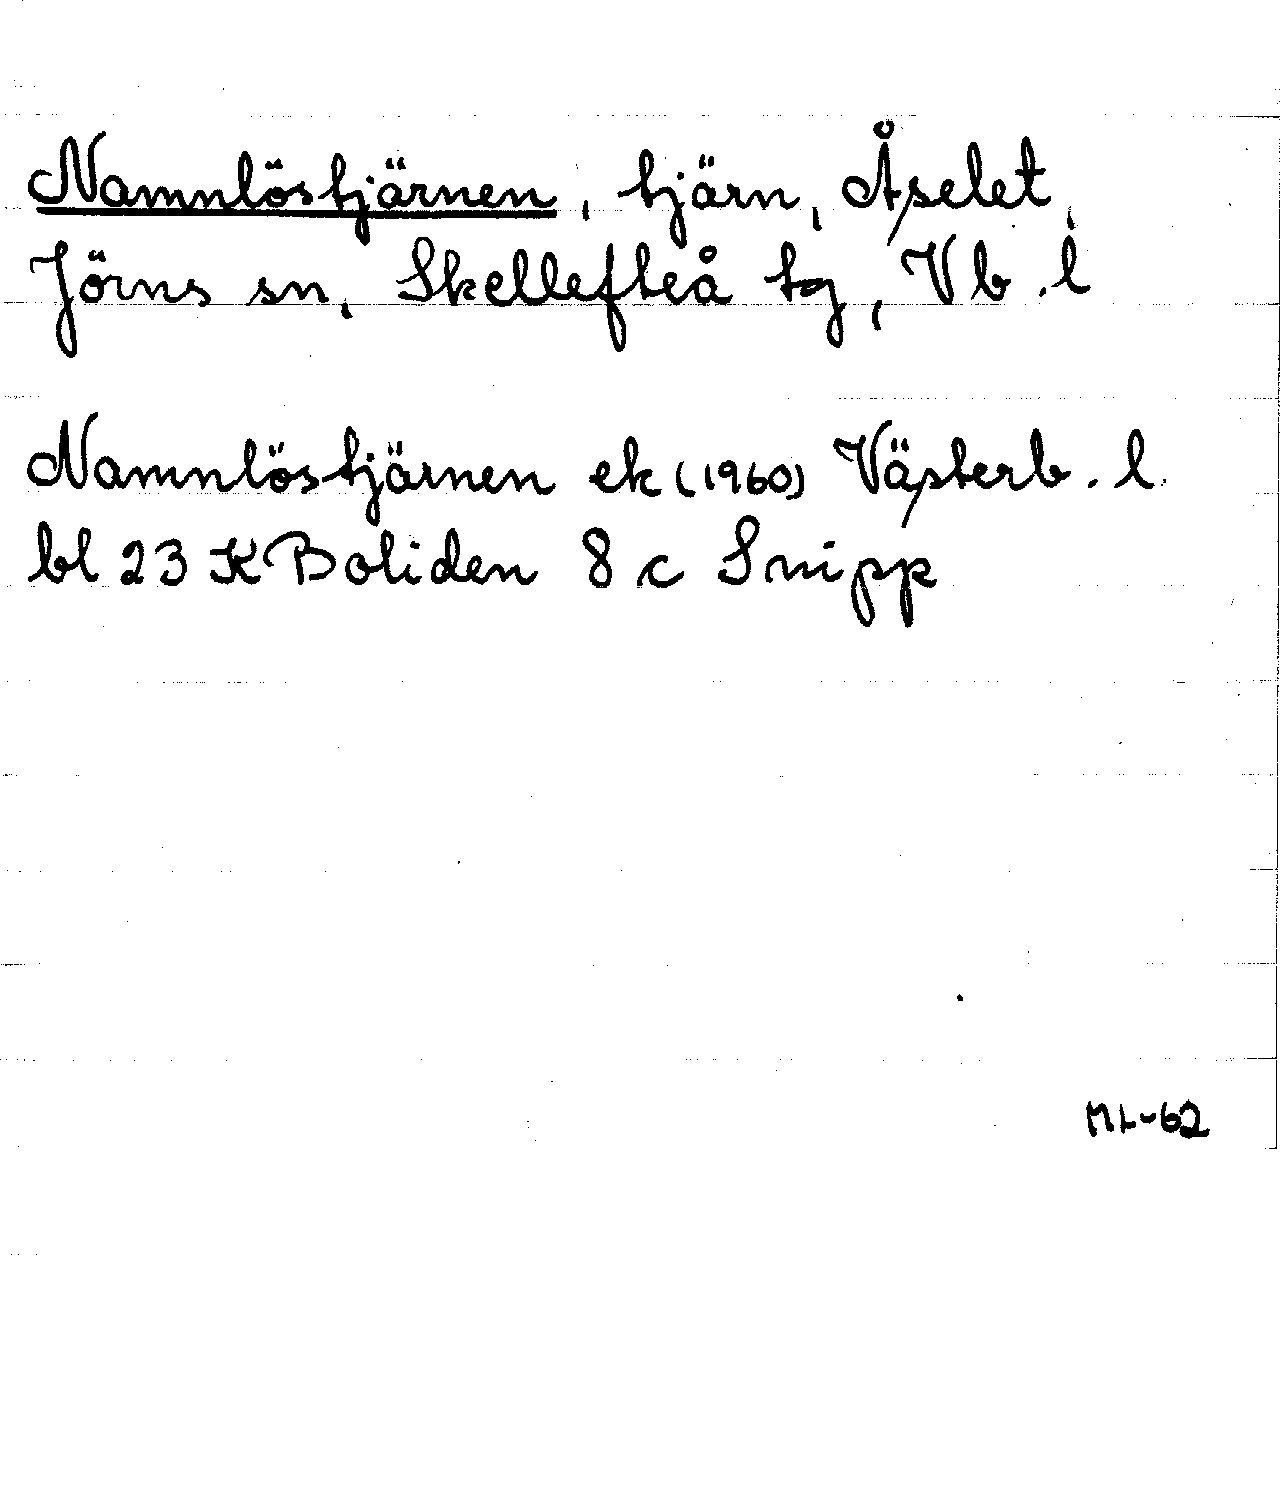 Namnlöstjärnen, tjärn, Åselet,
Jörns sn, Skellefteå tg, Vb. l
Namnlöstjärnen ek (1960) Västerb. l.
bl 23 K Boliden 8 c Snipp
ML-62